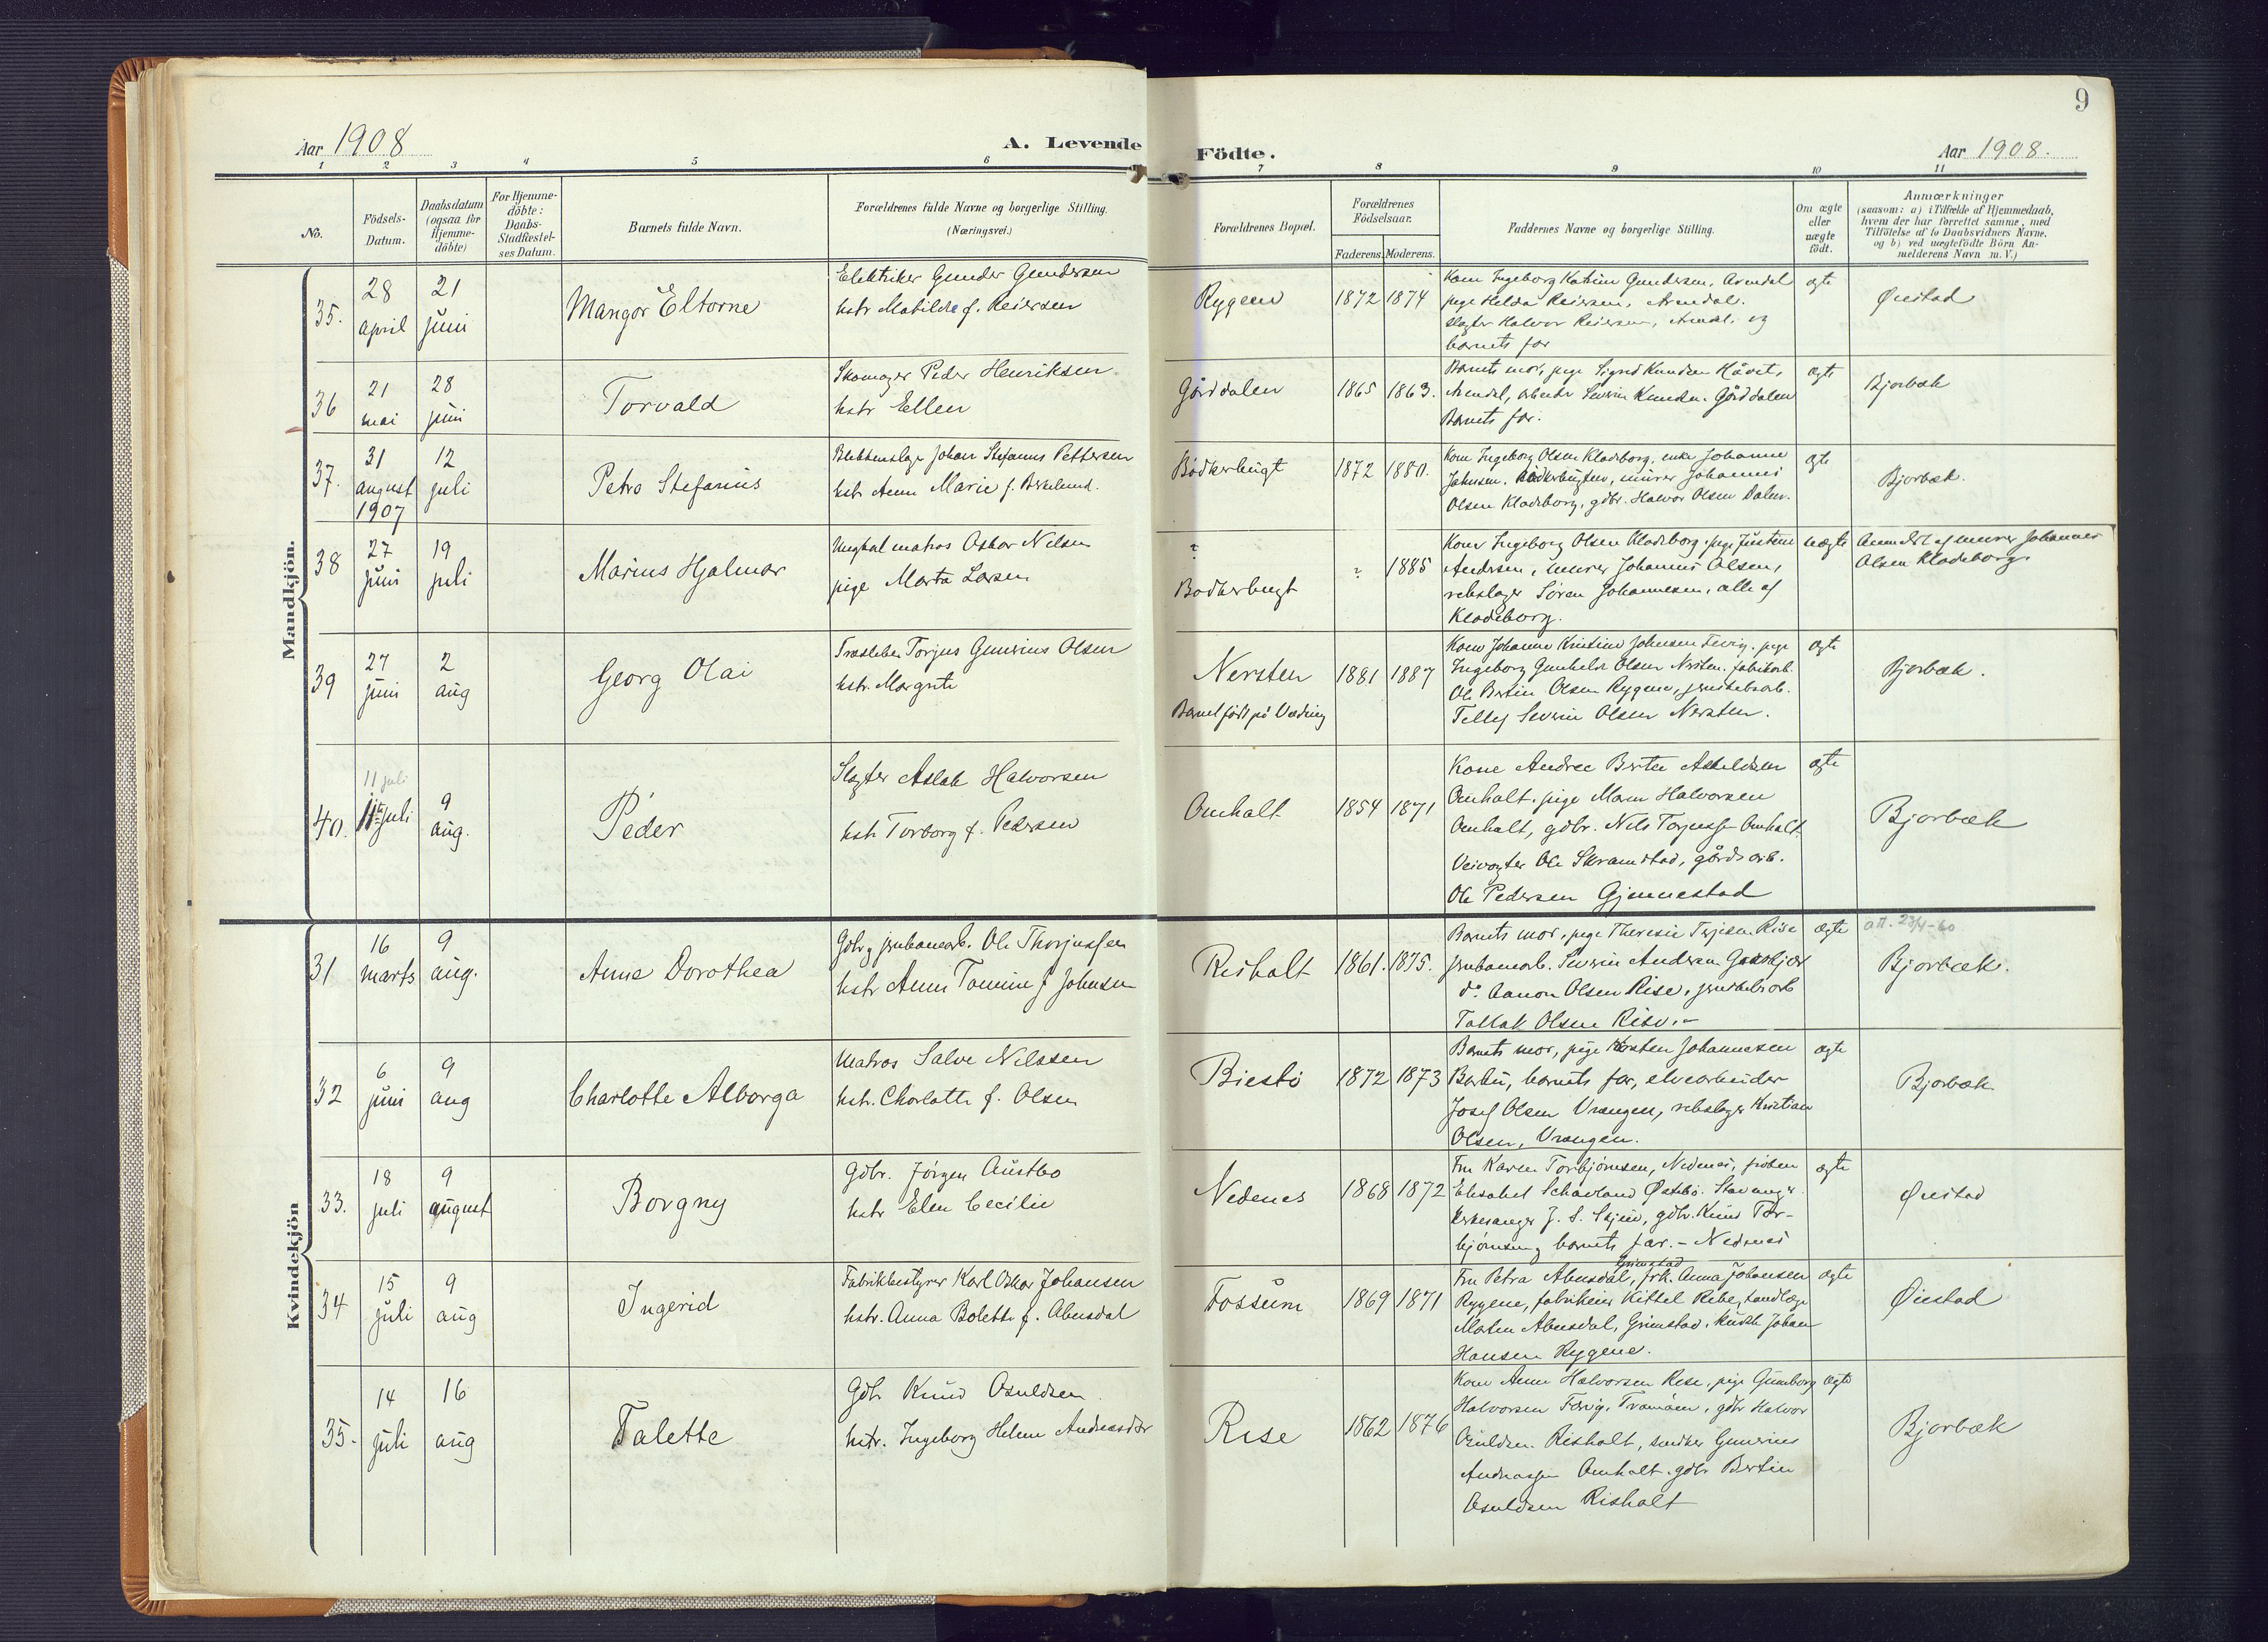 9
Aar 1908
A. Levende
Födte.
Aar 1908.
1 2 3 4 5 6 7 8 9 10 11
No.
Födsels-
Datum.
Daabsdatum
(ogsaa for
Hjemme-
döbte)
For Hjemme-
döbte:
Daabs-
Stadfæstel-
ses Datum.
Barnets fulde Navn.
Forældrenes fulde Navne og borgerlige Stilling.
(Næringsvei.)
Forældrenes Bopæl.
Forældrenes
Födselsaar.
Faderens. Moderens.
Faddernes Navne og borgerlige Stilling.
Om ægte
eller
uægte
födt.
Anmærkninger
(saasom: a) i Tilfælde af Hjemmedaab,
hvem der har forrettet samme, med
Tilföielse af to Daabsvidners Navne,
og b) ved uægtefödte Börn An-
melderens Navn m. V.)
Mandkjön.
35.
28
april
21
juni
Mangor Eltorne
Elektriker Gunder Gundersen
hstr Matilde f. Reiersen
Rygene
1872 1874
Kone Ingeborg Katrine Gundersen, Arendal
pige Helda Reiersen, Arendal.
slagter Halvor Reiersen, Arendal. og
barnets far
ægte
Øiestad
36
21
mai
28
juni
Torvald
Skomager Peder Henriksen
hstr Ellen
Gårddalen
1865 1863.
Barnets mor, pige Sigrid Knudsen Håvet,
Arendal, arbeider Severin Knudsen Gårddalen
Barnets far.
ægte
Bjorbæk
37.
31
august
1907
12
juli
Petro Stefanius
Blikkenslager Johan Stefanus Pettersen
hstr Anne Marie f. Birkelund.
Bödkerbugt
1872 1880.
Kone Ingeborg Olsen Kladeborg, enke Johanne
Johnsen. Bödkerbugten, murer Johannes
Olsen Kladeborg, gdbr. Halvor Olsen Dalen.
ægte
Bjorbæk.
38
27
juni
19
juli
Marius Hjalmar
Ungkarl matros Oskar Nilsen
pige Marta Larsen
?
Bodkerbugt
? 1885
Kone Ingeborg Olsen Kladeborg. pige Justine
Andersen, murer Johannes Olsen,
rebslager Sören Johannesen, alle af
Kladeborg.
uægte
Anmeldt af murer Johannes
Olsen Kladeborg.
39
27
juni
2
aug
Georg Olai
Træsliber Torjus Gunerius Olsen
hstr. Margrete
Nersten
Barnet födt på Vedning
1881 1887
Kone Johanne Kristine Johnsen Tveig. pige
Ingeborg Gunhilde Olsen Nersten. fabrikarb.
Ole Bertin Olsen Rygene, jernstøbarb.
Tellef Severin Olsen Nersten.
ægte
Bjorbæk.
40.
11 juli
11te juli
9
aug.
Peder
Slagter Aslak Halvorsen
hstr Torborg f. Pedersen
Omholt
1854 1871
Kone Andrea Bertea Askildsen
Omholt. pige Maren Halvorsen
Omholt, gdbr. Nils Torjussen Omholt.
Veivogter Ole Skramstad, gårdsarb.
Ole Pedersen Gjennestad
ægte
Bjorbæk
Kvindekjön
31
16
marts
9
aug.
Anne Dorothea
Gdbr og jernbanearb. Ole Thorjussen
hstr Anne Tomine f Johnsen
Risholt
1861. 1875.
Barnets mor, pige Theresie Terjesen Rise
jernbanearb. Severin Andersen
do. Aanon Olsen Rise,
Tallak Olsen Rise.
ægte
att. 23/4-60
Bjorbæk.
32
6
juni
9
aug
Charlotte Alborga
Matros Salve Nilssen
hstr. Charlotte f. Olsen
Biestö
1872 1873
Barnets mor, pige Karsten Johannesen
Barbu, barnets far, elvearbeider
Josef Olsen Vrangen, rebslager Kristian
Olsen, Vrangen.
ægte
Bjorbæk
33.
18
juli
9
august
Borgny
Gdbr. Jörgen Austbo
hstr Elen Cecilie
Nedenes
1868 1872
Fru Karen Torbjörnsen, Nedenes, fröken
Elisabet Schavland Østebö. Stavanger
Kirkesanger J. S. Skjeie, gdbr. Knud Tor-
björnsen og barnets far. - Nedenes
ægte
Øiestad
34
15
juli
9
aug
Ingerid
Fabrikbestyrer Karl Oskar Johansen
hstr. Anna Bolette f. Abusdal
Fossum
1869 1871
Grimstad
Fru Petra Abusdal, frk. Anna Johansen
Rygene, fabrikeier Kittel Ribe, tandlæge
Morten Abusdal, Grimstad, kusk Johan
Hansen Rygene.
ægte
Øiestad
35.
14
juli
16
aug
Talette
Gdbr Knud Osuldsen
hstr. Ingeborg Helene Andreasdtr
Rise
1862 1876
Kone Anne Halvorsen Rise, pige Gunborg
Halvorsen Færvig, Tromöen, gdbr Halvor
Osuldsen. Risholt, snedker Gunerius
Andreassen Omholt. gdbr Bertin
Osuldsen Risholt
ægte
Bjorbæk